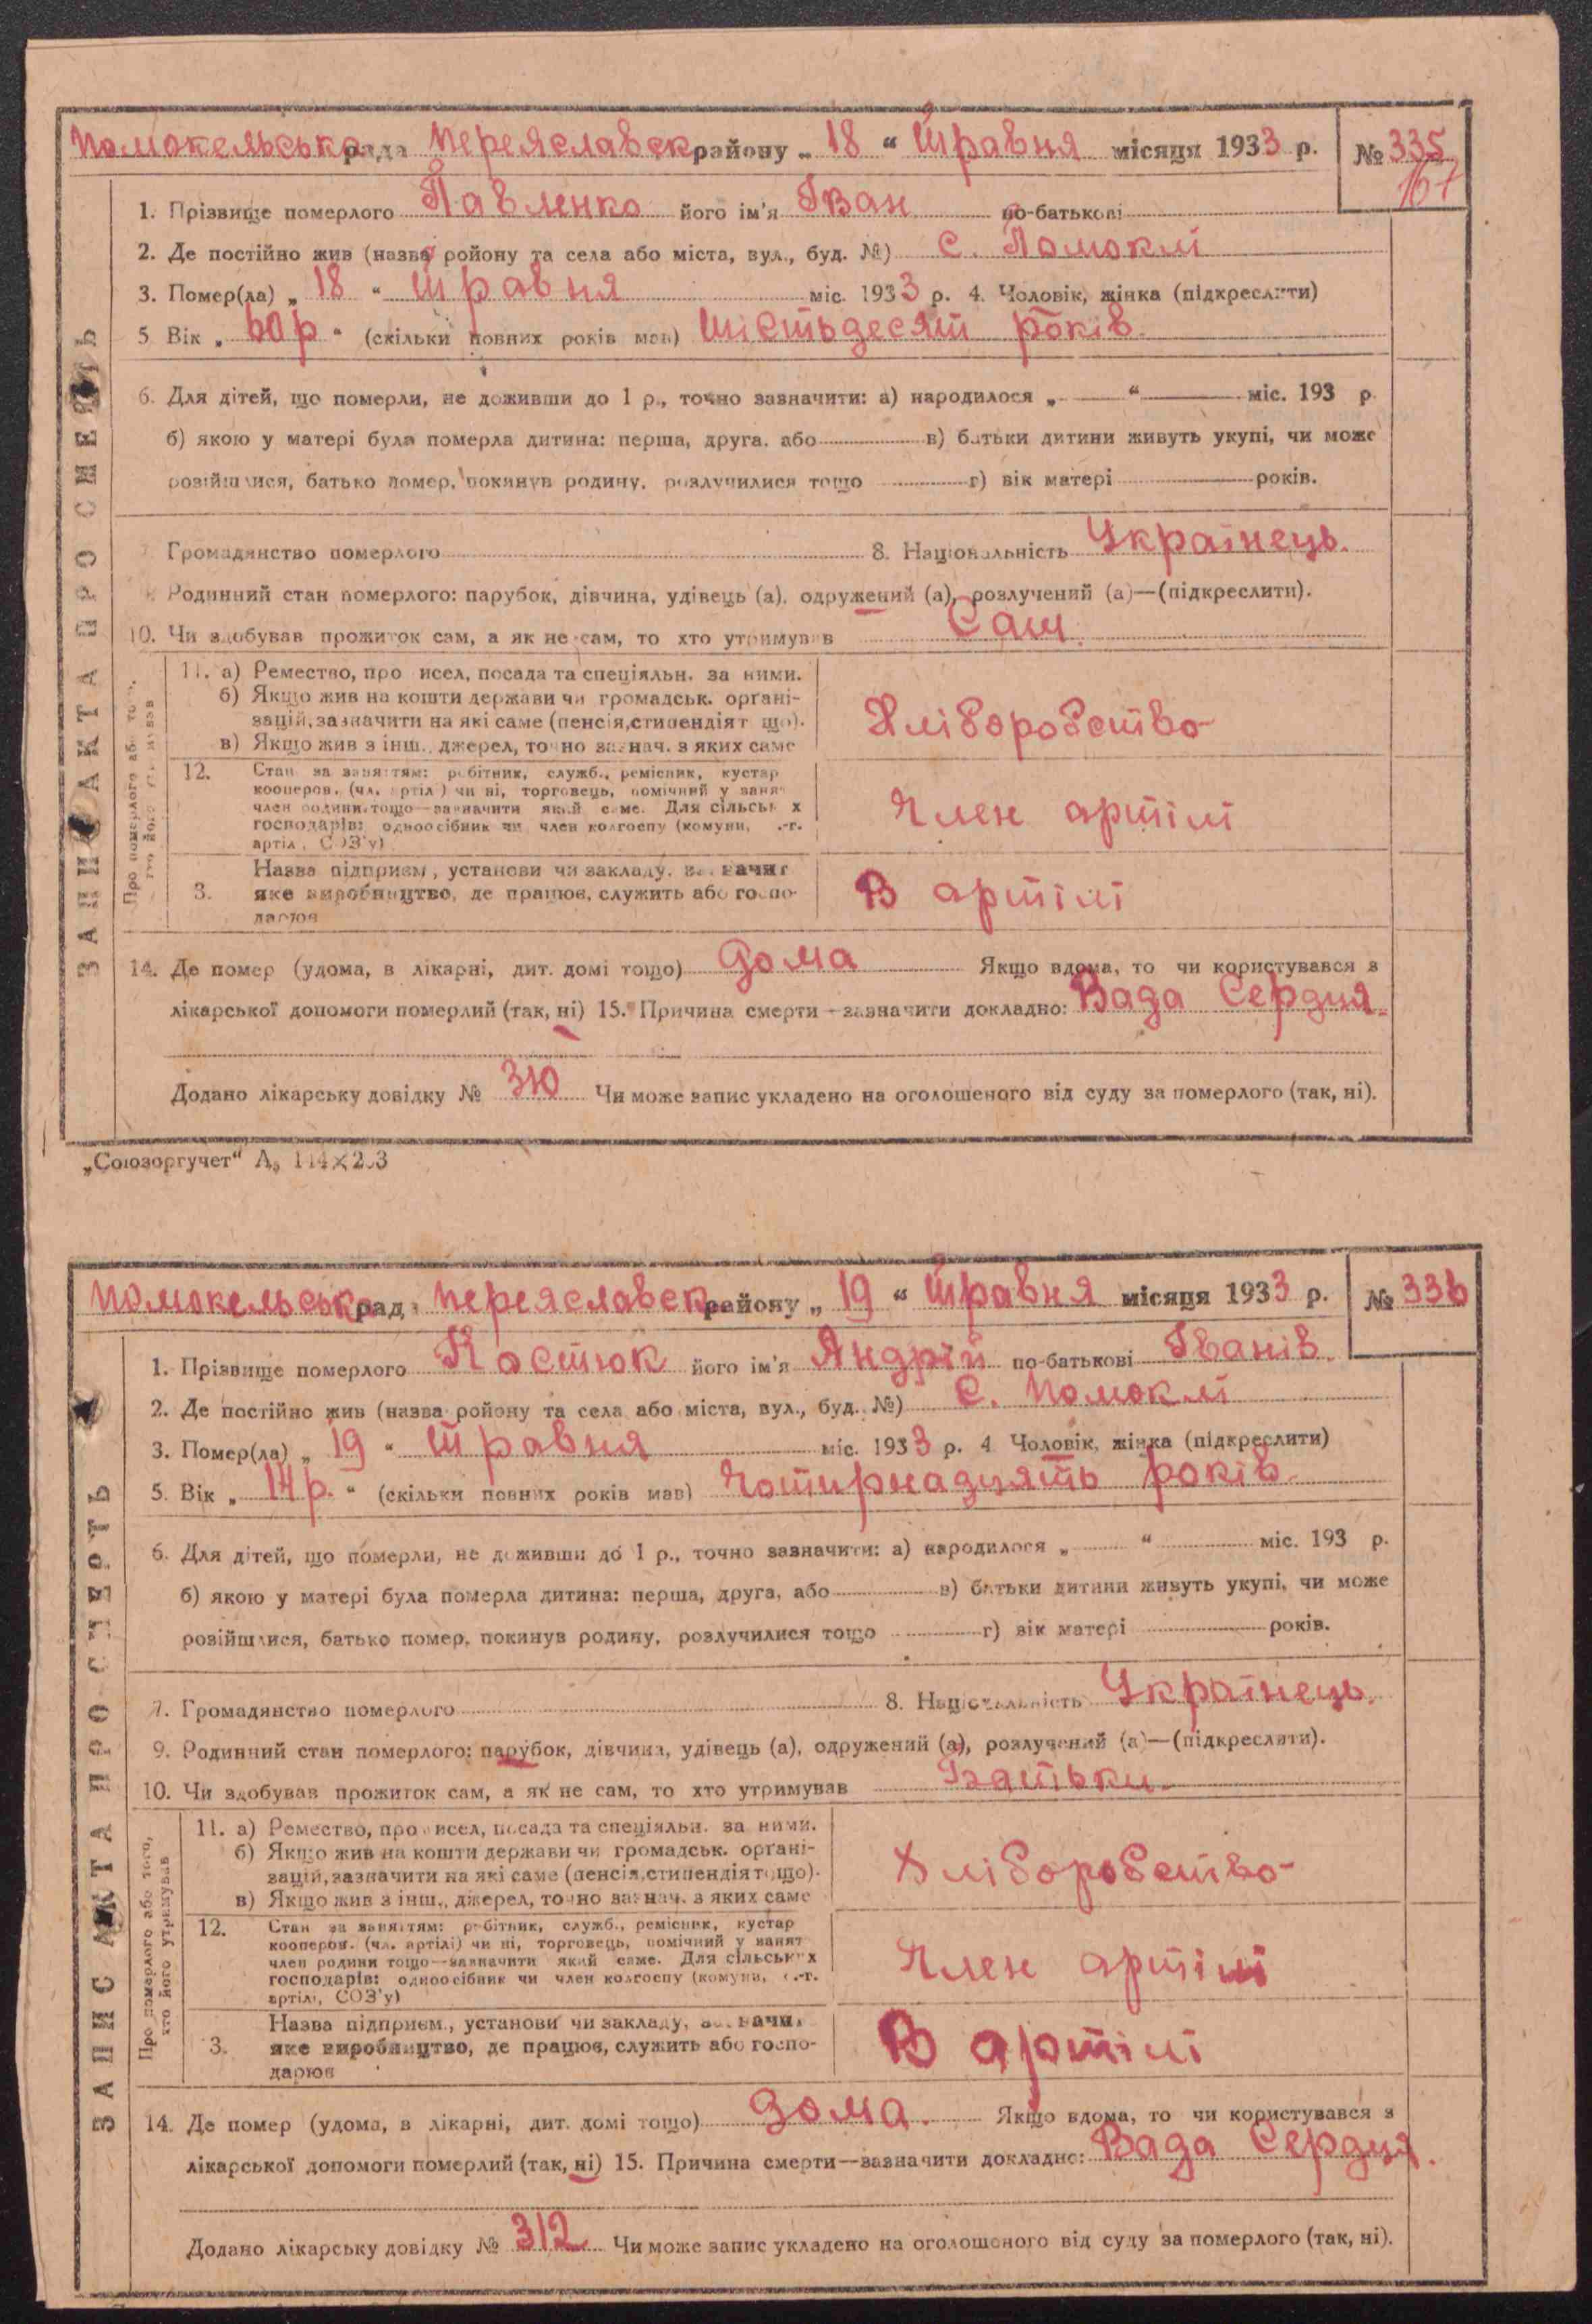 Помокельська рада Переяславск району „ 18 “ Травня місяця 1933 р. № 335
167
1. Прізвище померлого Павленко його ім'я Іван по-батькові
2. Де постійно жив (назва ройону та села або міста, вул., буд. №) с. Помоклі
3. Помер(ла) „ 18 “ Травня міс. 1933 р. 4. Чоловік, жінка (підкреслити)
5 Вік „ 60 р “ (скільки повних років мав) шістьдесят років.
6. Для дітей, що померли, не доживши до 1 р., точно зазначити: а) народилося „ — “ — міс. 193 р.
б) якою у матері була померла дитина: перша, друга, або в) батьки дитини живуть укупі, чи може
розійшлися, батько помер, покинув родину, розлучилися тощо г) вік матері років.
Громадянство померлого 8. Національність Українець.
Родинний стан померлого: парубок, дівчина, удівець (а), одружений (а), розлучений (а)—(підкреслити).
10. Чи здобував прожиток сам, а як не сам, то хто утримував Сам.
11. а) Ремество, про исел, посада та спеціяльн. за ними.
б) Якщо жив на кошти держави чи громадськ. органі-
зацій, зазначити на які саме (пенсія, стипендіят що).
в) Якщо жив з інш., джерел, точно зазнач. з яких саме
Хліборобство
12. Стан за заняттям: робітник, служб., ремісник, кустар
кооперов. (чл. артілі) чи ні, торговець, помічний у занят
член родини тощо—зазначити який саме. Для сільськ х
господарів: одноосібник чи член колгоспу (комуни, .-г.
артіл, СОЗ'у)
Член артілі
3. Назва підприєм, установи чи закладу, за начит
яке виробництво, де працює, служить або госпо-
дарює
В артілі
14. Де помер (удома, в лікарні, дит. домі тощо) дома Якщо вдома, то чи користувався з
лікарської допомоги померлий (так, ні) 15. Причина смерти—зазначити докладно: Вада Серця.
Додано лікарську довідку № 310 Чи може запис укладено на оголошеного від суду за померлого (так, ні).
ЗАПИС АКТА ПРО СМЕРТЬ
Про померлого або того,
хто його утримував
„Союзоргучет“ А5 114×203
Помокельська рад Переяславск району „ 19 “ Травня місяця 1933 р. № 336
1. Прізвище померлого Костюк його ім'я Андрій по-батькові Іванів.
2. Де постійно жив (назва ройону та села або міста, вул., буд. №) С. Помоклі
3. Помер(ла) „ 19 “ Травня міс. 1933 р. 4 Чоловік, жінка (підкреслити)
5. Вік „ 14 р. “ (скільки повних років мав) Чотирнадцять років.
6. Для дітей, що померли, не доживши до 1 р., точно зазначити: а) народилося „ “ міс. 193 р.
б) якою у матері була померла дитина: перша, друга, або в) батьки дитини живуть укупі, чи може
розійшлися, батько помер, покинув родину, розлучилися тощо г) вік матері років.
7. Громадянство померлого 8. Національність Українець.
9. Родинний стан померлого: парубок, дівчина, удівець (а), одружений (а), розлучений (а)—(підкреслити).
10. Чи здобував прожиток сам, а як не сам, то хто утримував Батьки.
11. а) Ремество, про исел, посада та спеціяльн. за ними.
б) Якщо жив на кошти держави чи громадськ. органі-
зацій, зазначити на які саме (пенсія, стипендіят що).
в) Якщо жив з інш., джерел, точно зазнач. з яких саме
Хліборобство
12. Стан за заняттям: робітник, служб., ремісник, кустар
кооперов. (чл. артілі) чи ні, торговець, помічний у занят
член родини тощо—зазначити який саме. Для сільських
господарів: одноосібник чи член колгоспу (комуни, с.-г.
артілі, СОЗ'у)
Член артілі
3. Назва підприєм., установи чи закладу, за начи
яке виробництво, де працює, служить або госпо-
дарює
В артілі
14. Де помер (удома, в лікарні, дит. домі тощо) дома. Якщо вдома, то чи користувався з
лікарської допомоги померлий (так, ні) 15. Причина смерти—зазначити докладно: Вада Серця.
Додано лікарську довідку № 312 Чи може запис укладено на оголошеного від суду за померлого (так, ні).
ЗАПИС АКТА ПРО СМЕРТЬ
Про померлого або того,
хто його утримував